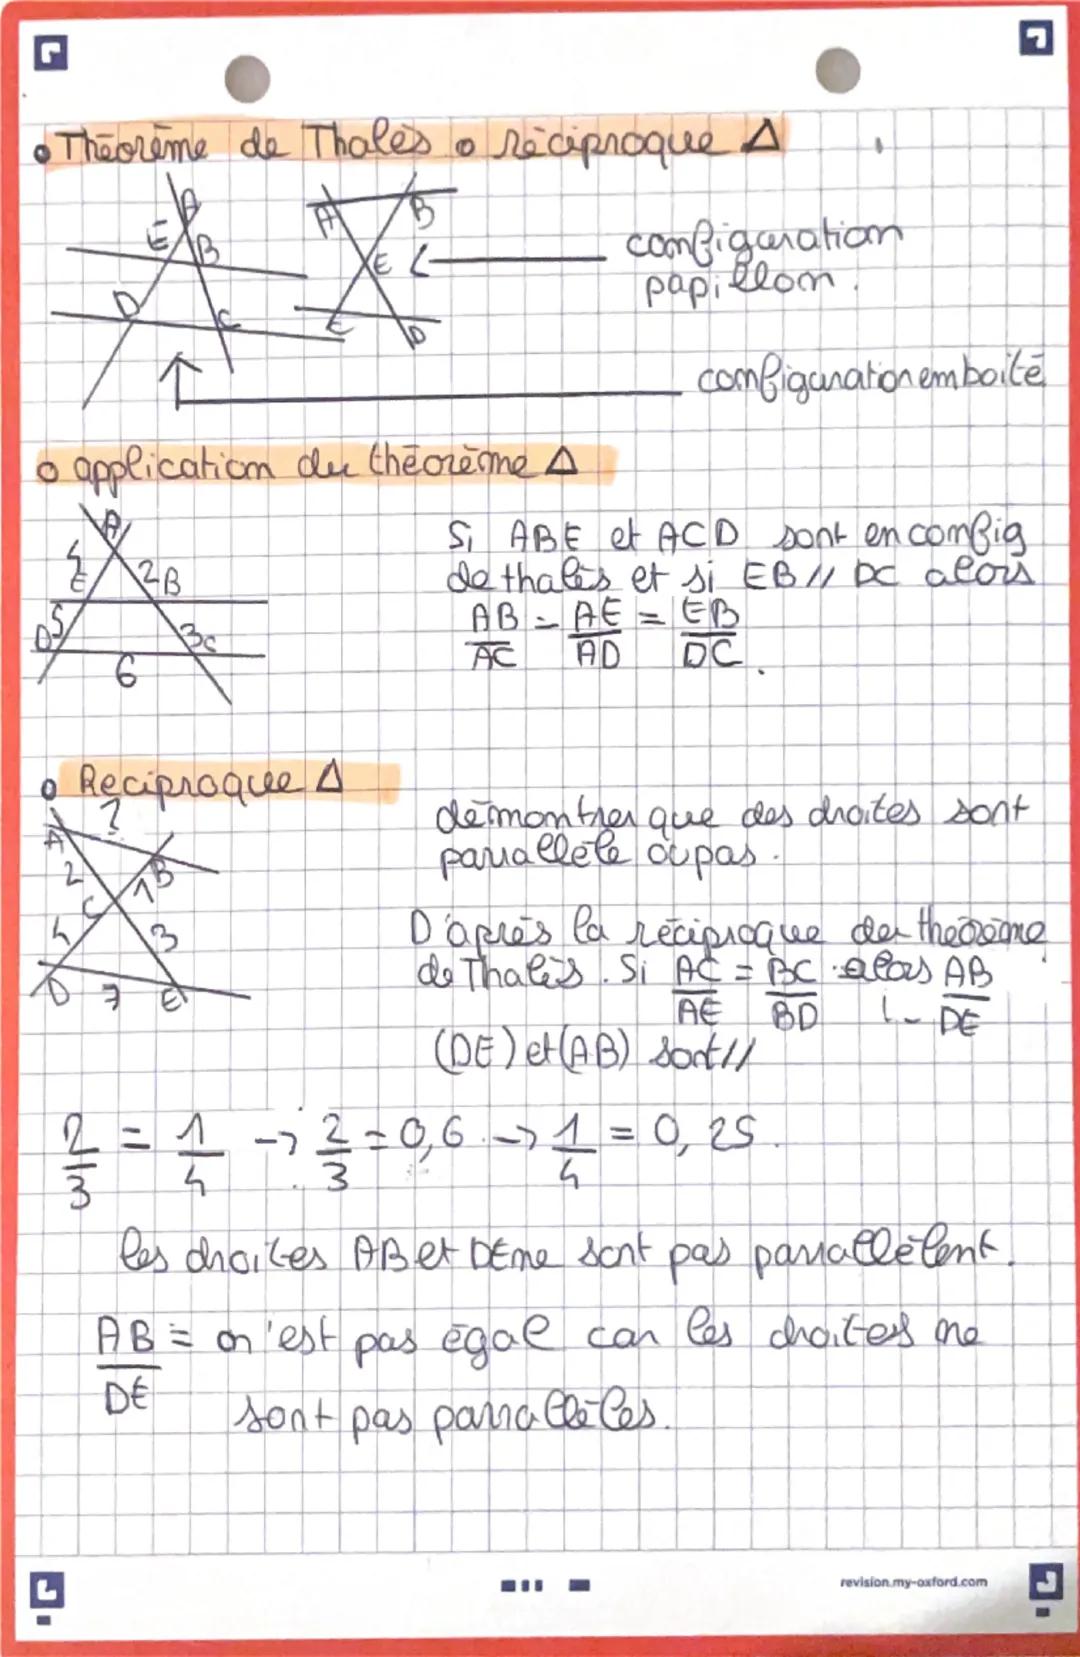 • Théorème de Thalès o réciproque Δ
A
E B
D C
A B
E
E D
configuration
papillon.
configuration emboité
o application du théorème Δ
A
4 2 B
E
D 5 3 C
6
Si ABE et ACD sont en config
de thalès et si EB // DC alors
AB = AE = EB
AC AD DC.
o Reciproque Δ
?
A
2 1 B
C
4 3
D 7 E
démontrer que des droites sont
parallèle ou pas.
D'après la réciproque du théorème
de Thalès. Si AC = BC alors AB
AE BD DE
(DE) et (AB) sont //
2 = 1 → 2 = 0,6 → 1 = 0,25.
3 4 3 4
les droites AB et DE ne sont pas parallèlent.
AB = n'est pas égal car les droites ne
DE
sont pas parallèles.
revision.my-oxford.com